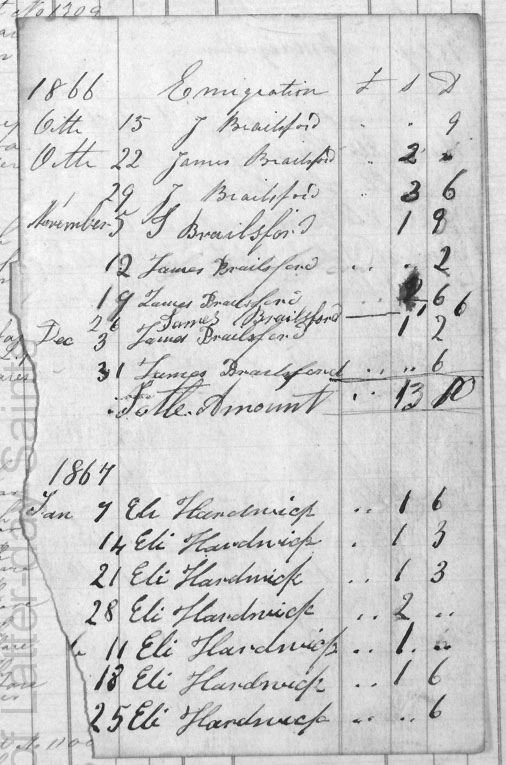 No 1309
1866 Emigration £ S D
Octbr 15 J Brailsford . . 9
Octbr 22 James Brailsford .. 2 "
29 J Brailsford .. 3 6
November 5 J Brailsford 1 8
12 James Brailsford .. .. 2
19 James Brailsford .. 6
26 James Brailsford — " 6
Dec 3 James Brailsford 1 2
31 James Brailsford .. .. 6
Totle Amount .. 13 10
1867
Jan 7 Eli Hardwick .. 1 6
14 Eli Hardwick .. 1 3
21 Eli Hardwick .. 1 3
28 Eli Hardwick .. 2 ..
11 Eli Hardwick .. 1 ..
18 Eli Hardwick .. 1 6
25 Eli Hardwick .. .. 6
of Latter-day Saints